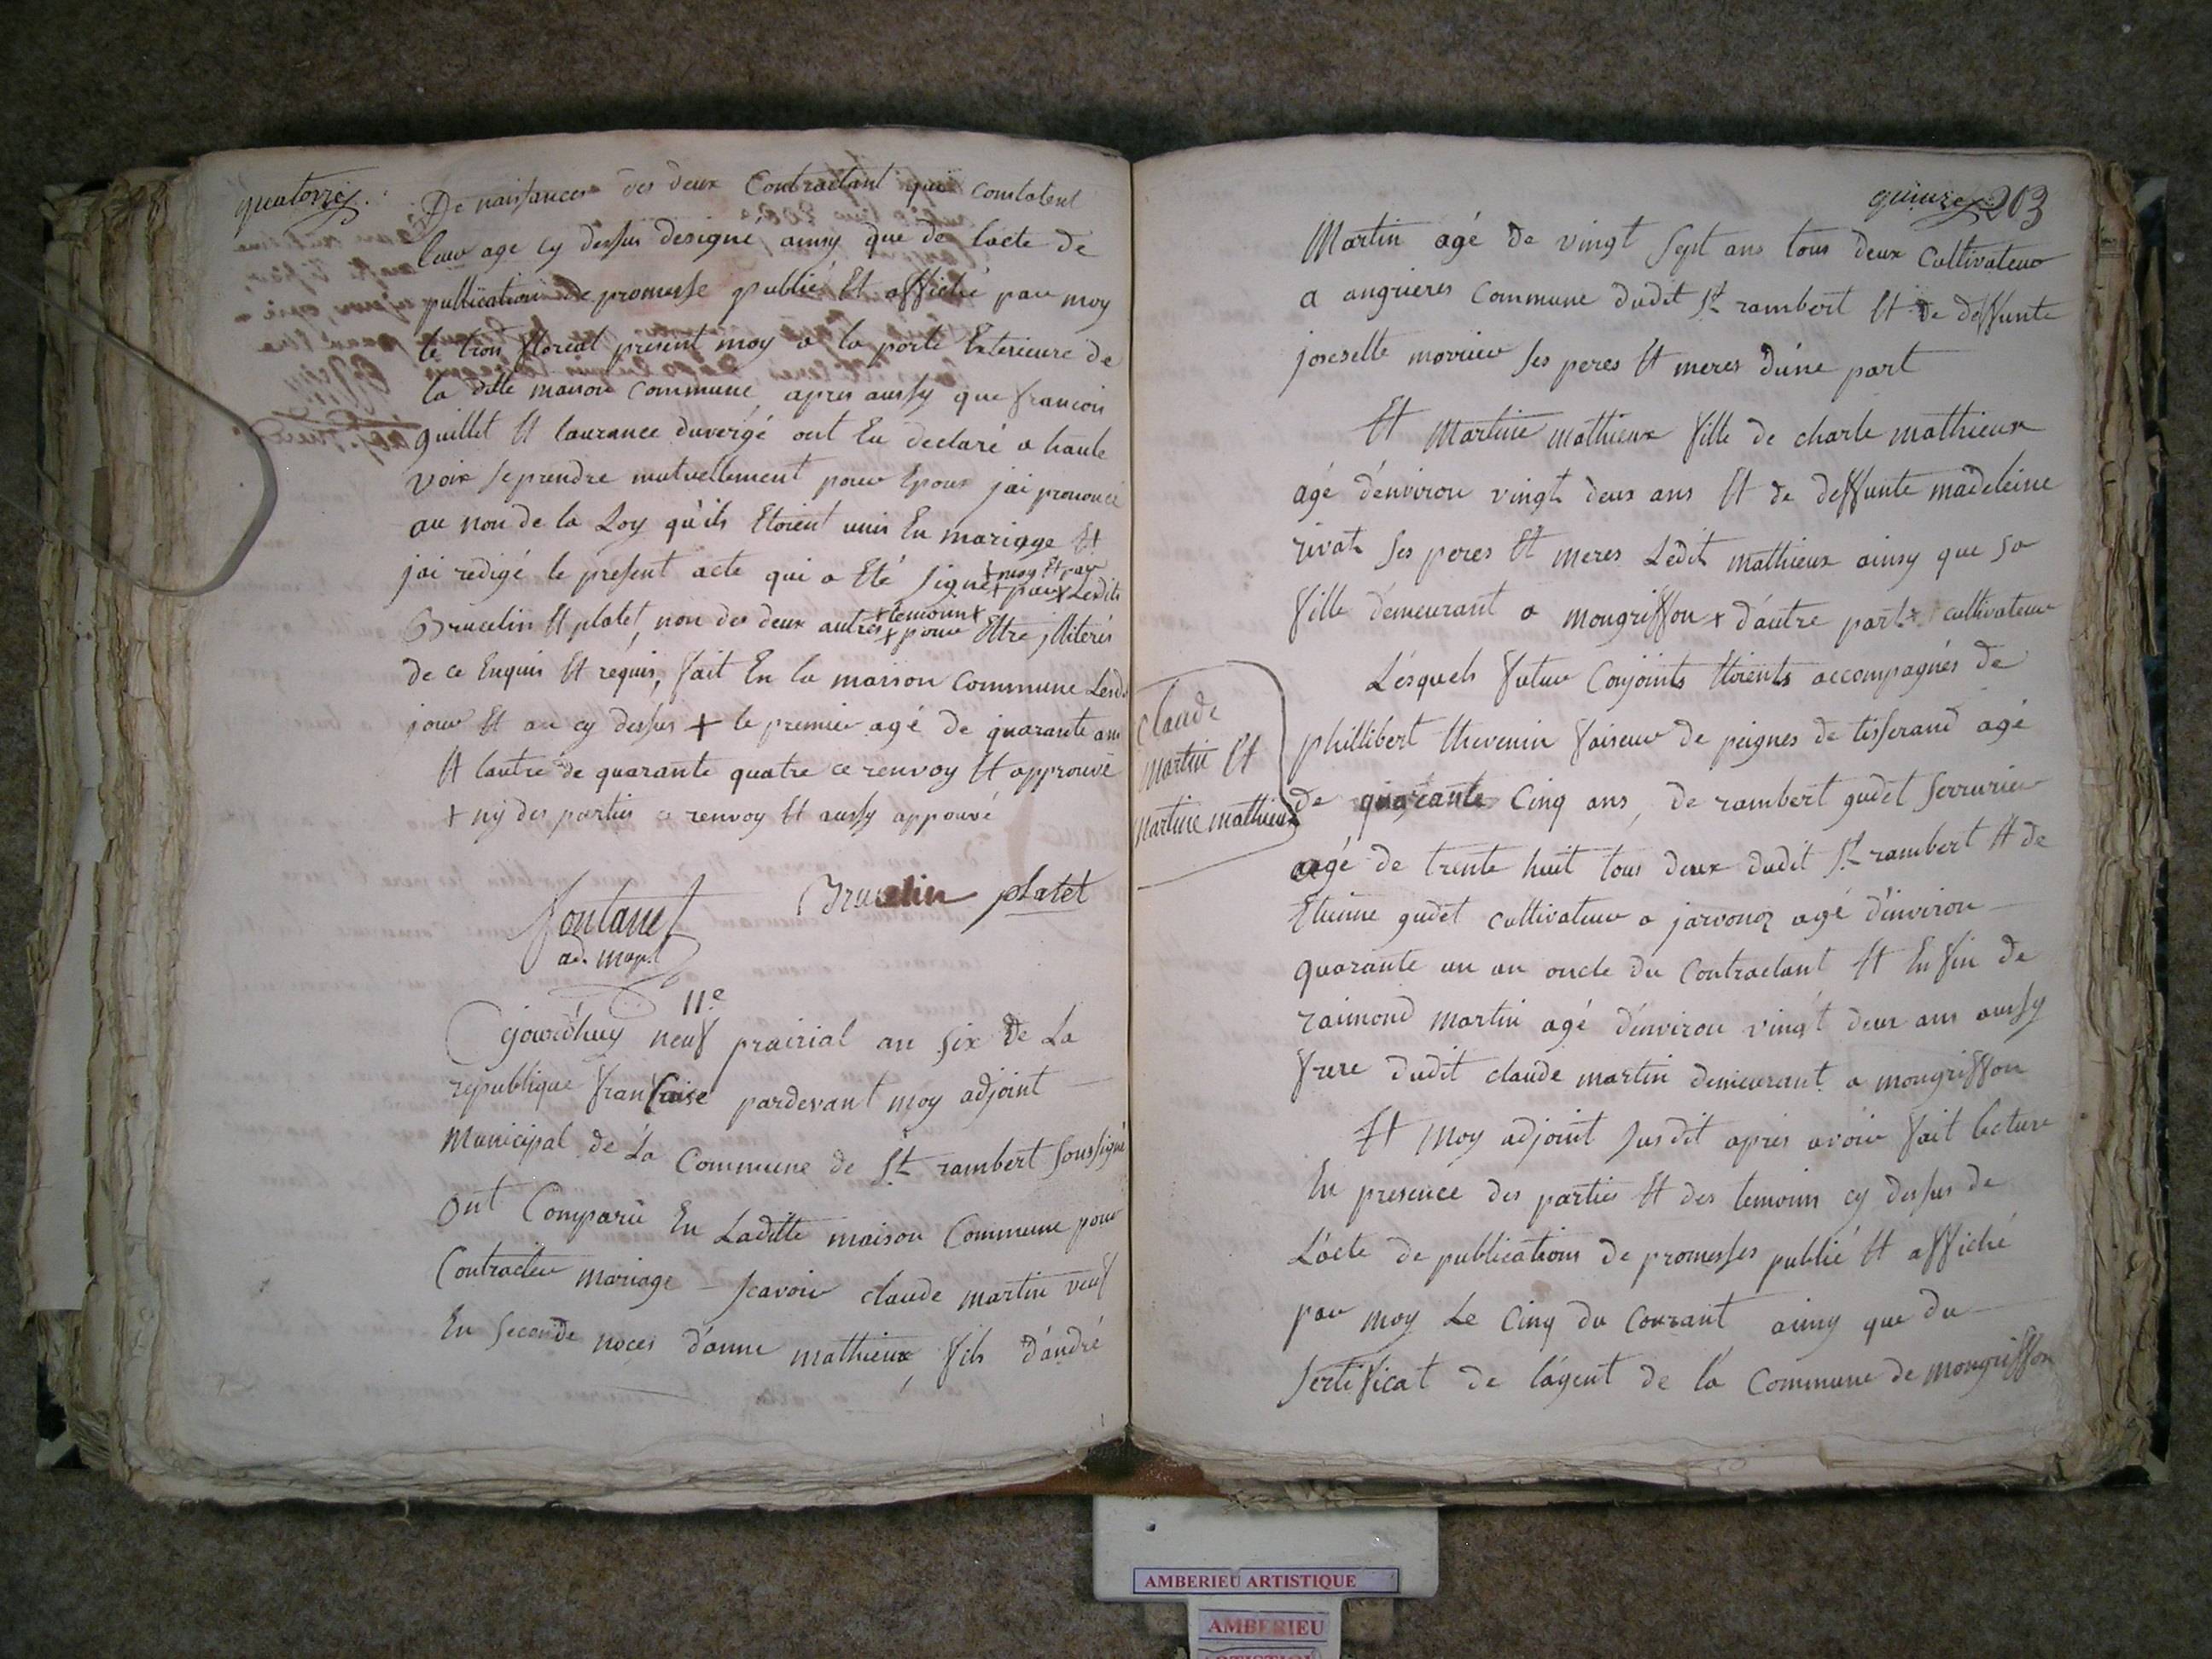 quatorze
De naissances des deux Contractant qui constatent
leur age cy dessus designé ainsy que de l'acte de
publication de promesse publié Et affiché par moy
le trois floreal present moy a la porte Exterieure de
la ditte maison Commune apres aussy que francois
guillet Et laurance duvergé ont Eu declaré a haute
voix se prendre mutuellement pour Epoux jai prononcé
au non de la Loy qu'ils Etoient unis En mariage Et
jai redigé le present acte qui a Eté signé par Lesdits
+ moy Et par
Brucelin Et platet, non des deux autres pour Etre illiterés
+ temoins +
de ce Enquis Et requis, fait En la maison Commune Lesd
jour Et an cy dessus + le premier agé de quarante ans
Et lautre de quarante quatre ce renvoy Et approuvé
+ ny des parties ce renvoy Et aussy appouvé
fontanet
ad. mapl
Brucelin platet
11e
Cejourdhuy neuf prairial an six de La
republique francaise pardevant moy adjoint
Municipal de La Commune de St rambert soussigné
Ont Comparu En Laditte maison Commune pour
Contracter mariage scavoir claude martin veuf
En seconde noces d'anne mathieux, fils d'andré
quinze 203
Martin agé de vingt sept ans tous deux Cultivateur
a angrieres Commune dudit St rambert Et de deffunte
joseselte morrier ses peres Et meres d'une part
Et Martine mathieux fille de charle mathieux
agé d'environ vingt deux ans Et de deffunte madeleine
rivat ses peres Et meres Ledit mathieux ainsy que sa
fille demeurant a mongriffon + d'autre part + cultivateur
Lesquels futur Conjoints Etoients accompagnés de
claude
martin Et
martine mathieux
phillibert thevenin faiseur de peignes de tisserand agé
de quarante Cinq ans, de rambert gudet serrurier
agé de trente huit tous deux dudit St rambert Et de
Etienne gudet cultivateur a jarvonoz agé d'environ
quarante un an oncle du Contractant Et Enfin de
raimond martin agé d'environ vingt deux ans aussy
frere dudit claude martin demeurant a mongriffon
Et Moy adjoint susdit apres avoir fait lecture
En presence des parties Et des temoins cy dessus de
L'acte de publications de promesses publié Et affiché
par moy Le Cinq du Courant ainsy que du
sertificat de l'agent de la Commune de mongriffon
AMBERIEU ARTISTIQUE
AMBERIEU